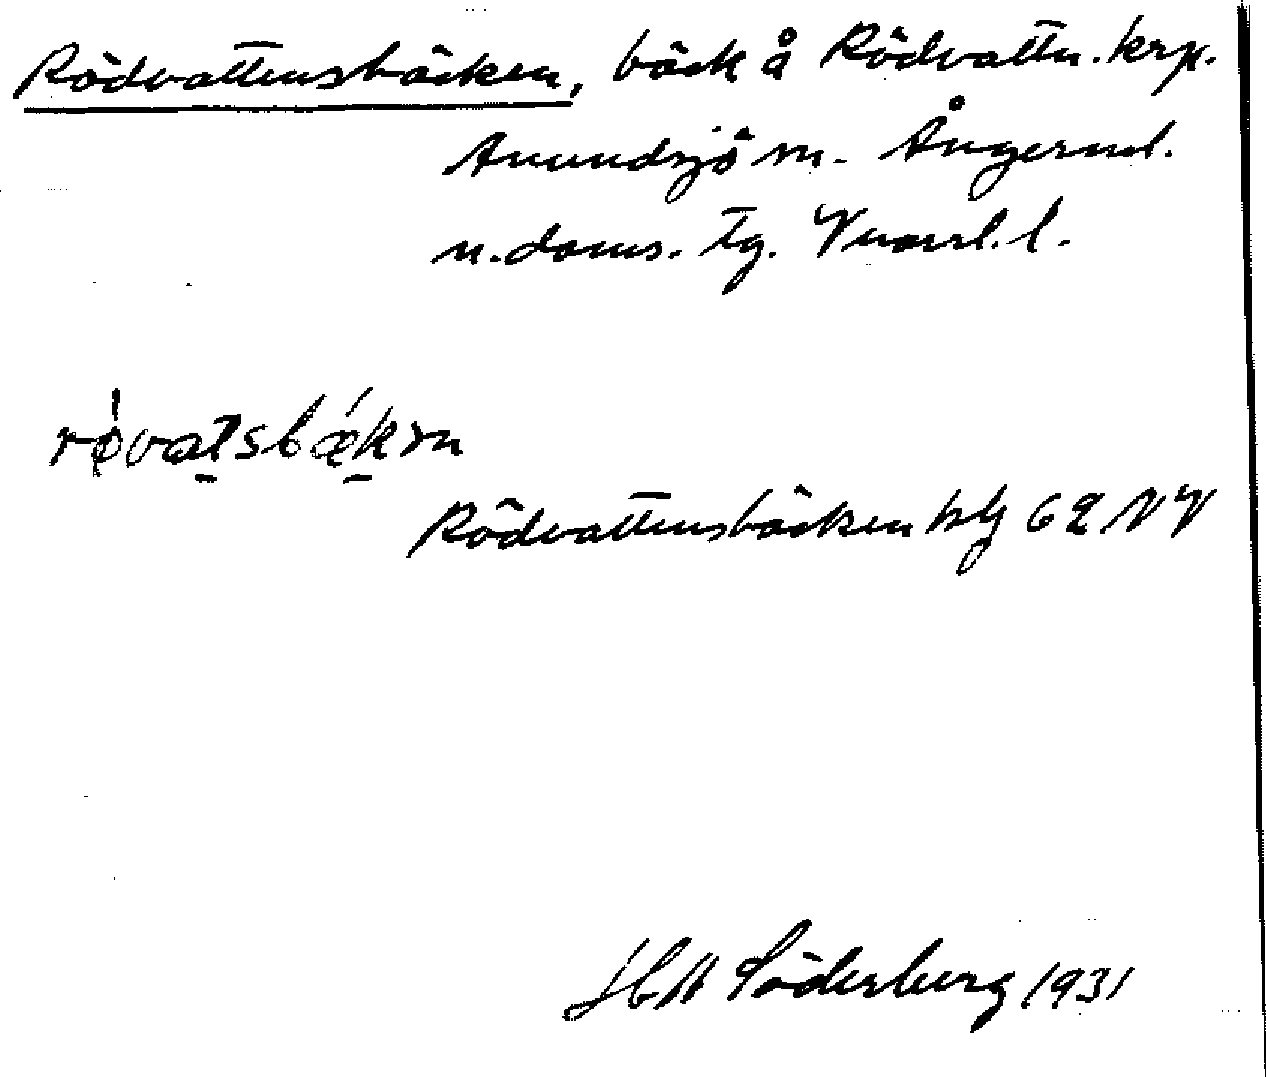 Rödvattensbäcken, bäck å Rödvattn. krp.
Anundsjö sn. Ångerml.
n. doms. Tg. Vnorrl. l.
Rödvattensbäcken blg 62 NV
HM Söderberg 1931